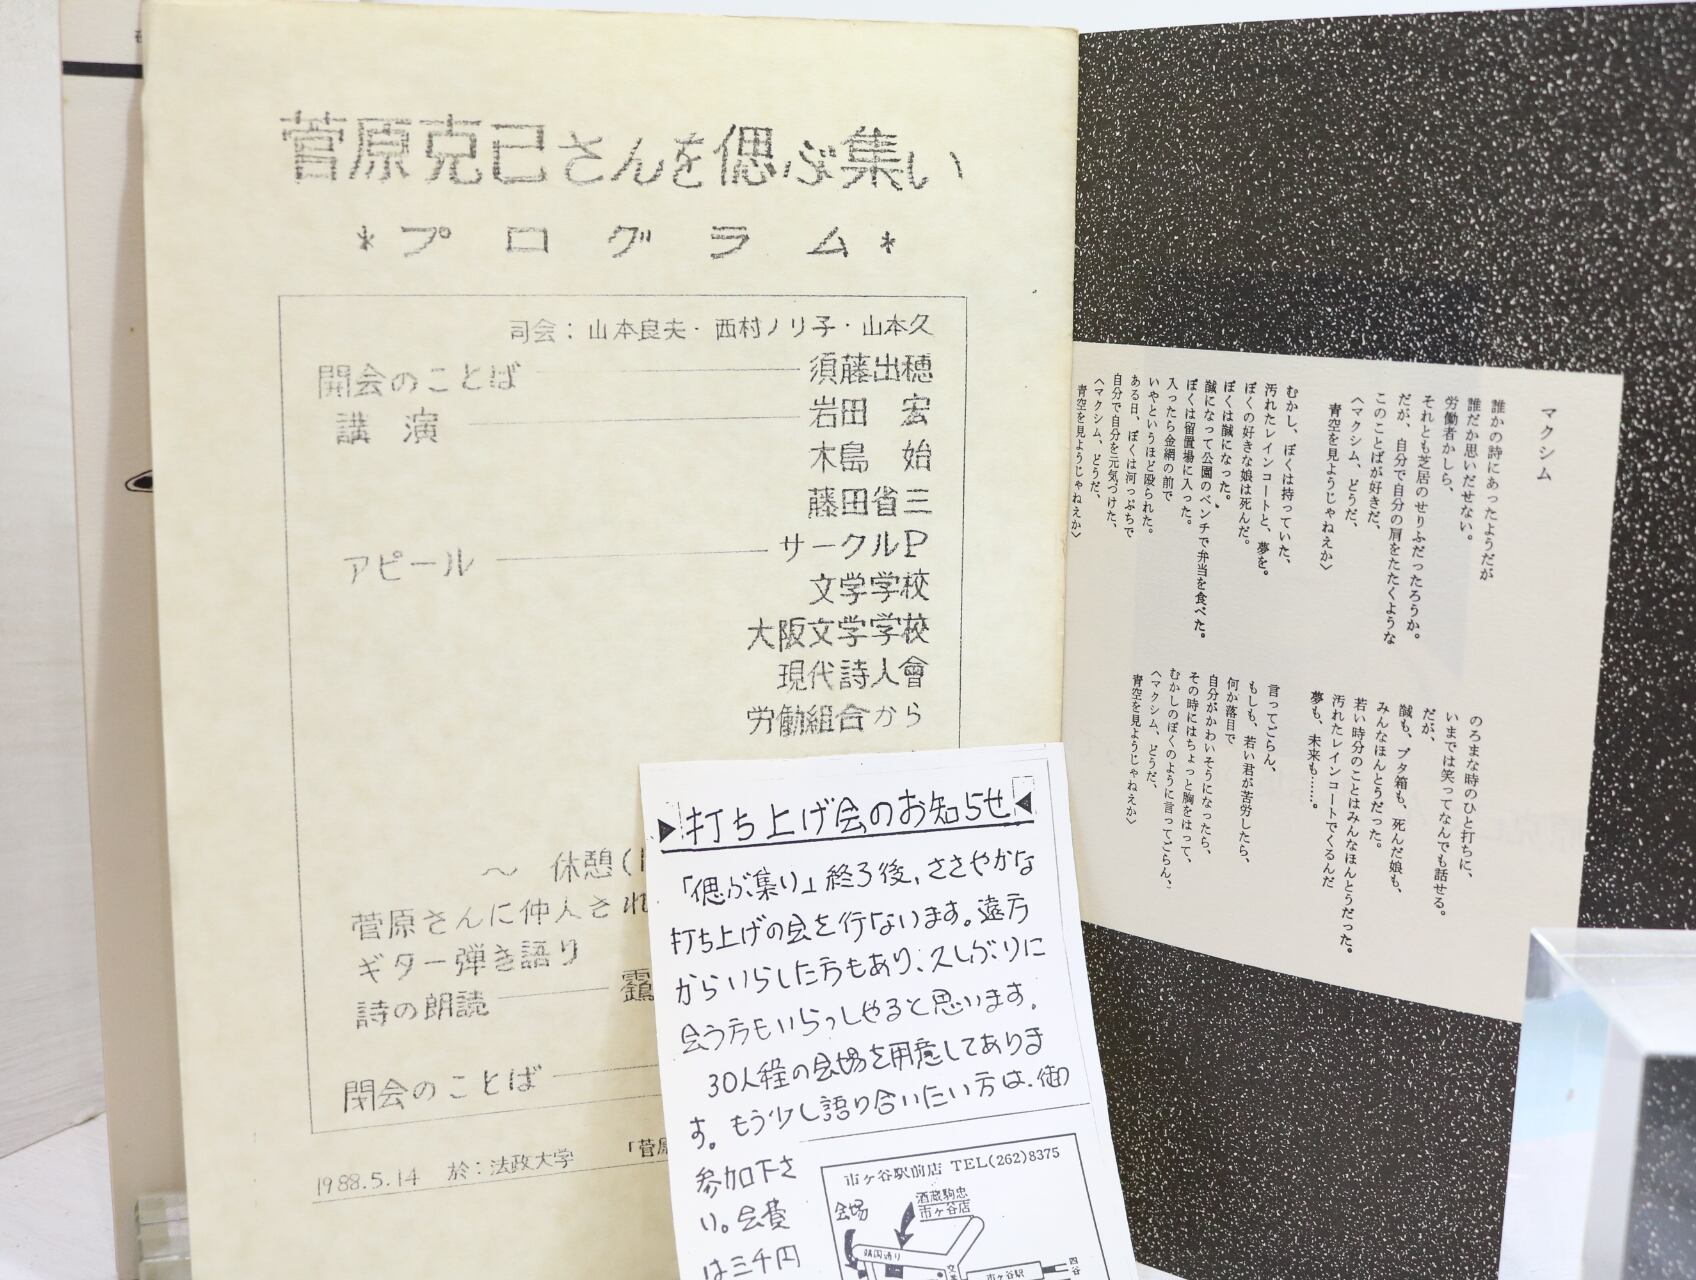 菅原克己さんを偲ぶ集い
*プログラム*
司会：山本良夫・西村ノリ子・山本久
開会のことば 須藤出穂
講演 岩田宏
木島始
藤田省三
アピール サークルP
文学学校
大阪文学学校
現代詩人會
労働組合から
～ 休憩(
菅原さんに仲人され
ギター弾き語り
詩の朗読
閉会のことば
1988.5.14 於：法政大学 「菅原
▶打ち上げ会のお知らせ◀
「偲ぶ集い」終了後、ささやかな
打ち上げの会を行ないます。遠方
からいらした方もあり、久しぶりに
会う方もいらっしゃると思います。
30人程の会場を用意してありま
す。もう少し語り合いたい方は、御
参加下さ
い。会費
は三千円
市ヶ谷駅前店 TEL(262)8375
会場
酒蔵駒忠
市ヶ谷店
靖国通り
市ヶ谷駅
四谷
マクシム
誰かの詩にあったようだが
誰だか思いだせない。
労働者かしら、
それとも芝居のせりふだったろうか。
だが、自分で自分の肩をたたくような
このことばが好きだ、
〈マクシム、どうだ、
青空を見ようじゃねえか〉
むかし、ぼくは持っていた、
汚れたレインコートと、夢を。
ぼくの好きな娘は死んだ。
ぼくは馘になった。
馘になって公園のベンチで弁当を食べた。
ぼくは留置場に入った。
入ったら金網の前で
いやというほど殴られた。
ある日、ぼくは河っぷちで
自分で自分を元気づけた、
〈マクシム、どうだ、
青空を見ようじゃねえか〉
のろまな時のひと打ちに、
いまでは笑ってなんでも話せる。
だが、
馘も、ブタ箱も、死んだ娘も、
みんなほんとうだった。
若い時分のことはみんなほんとうだった。
汚れたレインコートでくるんだ
夢も、未来も……。
言ってごらん、
もしも、若い君が苦労したら、
何か落目で
自分がかわいそうになったら、
その時にはちょっと胸をはって、
むかしのぼくのように言ってごらん、
〈マクシム、どうだ、
青空を見ようじゃねえか〉